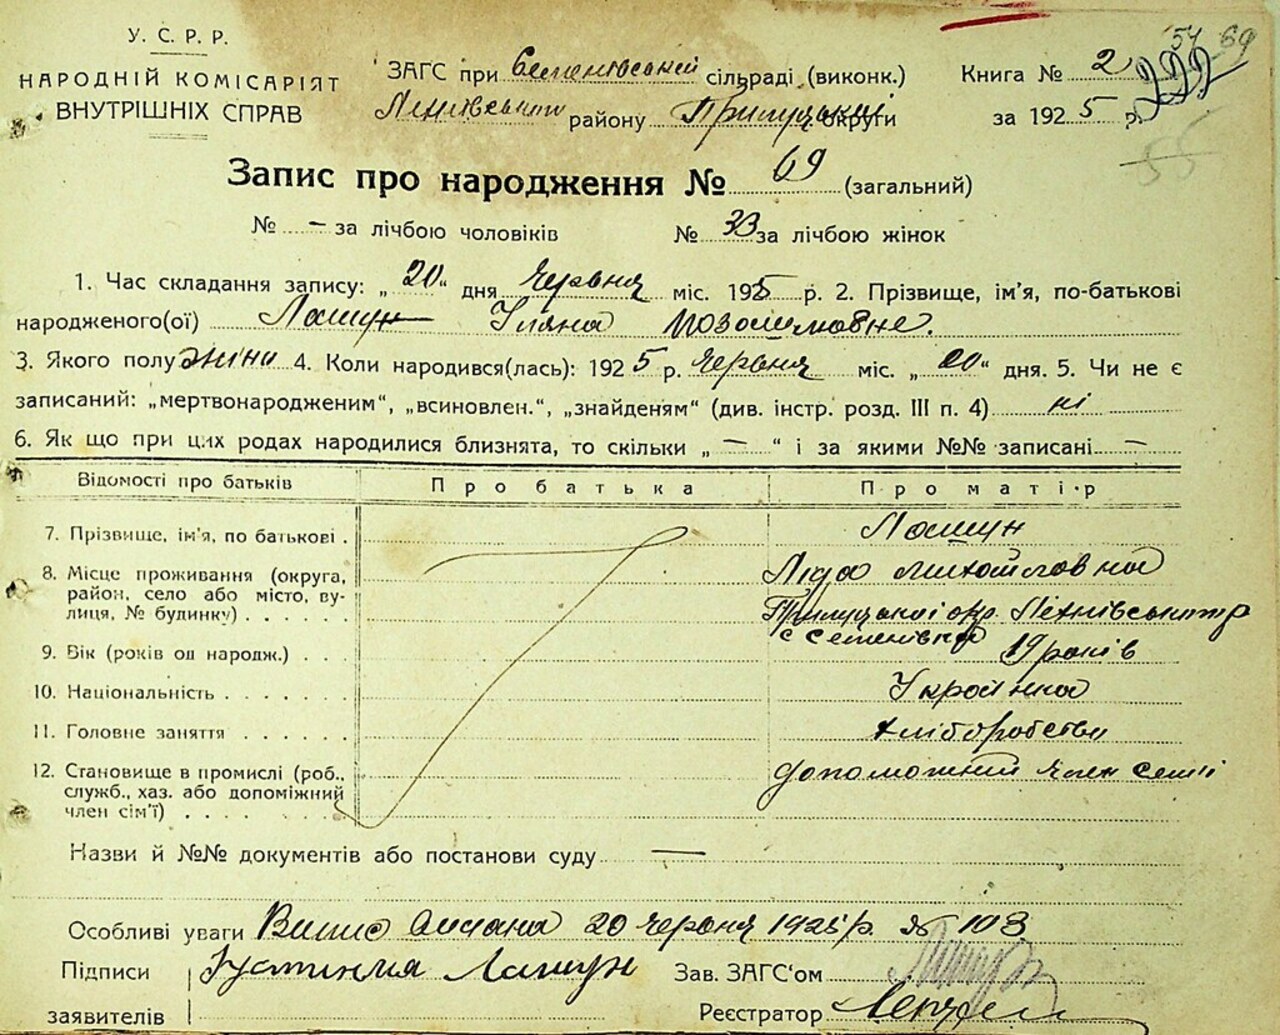 54 69
У. С. Р. Р.
НАРОДНІЙ КОМІСАРІЯТ
ВНУТРІШНІХ СПРАВ
ЗАГС при Семенівський сільраді (виконк.)
района району Прилуцькиї округи
Книга № 2 222
за 1925 р.
55
Запис про народження № 69 (загальний)
№ — за лічбою чоловіків № 33 за лічбою жінок
1. Час складання запису: „20“ дня червня міс. 1925 р. 2. Прізвище, ім'я, по-батькові
народженого(ої) Лашун Уляна
3. Якого полу жіни 4. Коли народився(лась): 1925 р. червня міс. „20“ дня. 5. Чи не є
записаний: „мертвонародженим“, „всиновлен.“, „знайденям“ (див. інстр. розд. III п. 4) ні
6. Як що при цих родах народилися близнята, то скільки „—“ і за якими №№ записані —
Відомості про батьків Про батька Про матір
7. Прізвище, ім'я, по батькові . Лашун
8. Місце проживання (округа, Михайловна
район, село або місто, ву-
лиця, № будинку) Прилуцької окр.
с Семенівка
9. Вік (років од народж.) . . . 19 років
10. Національність Українка
11. Головне заняття хліборобство
12. Становище в промислі (роб., допоможний член семії
служб., хаз. або допоміжний
член сім'ї)
Назви й №№ документів або постанови суду —
Особливі уваги Випис 20 червня 1925 р. № 103
Підписи Лашун Зав. ЗАГС'ом
заявителів Реєстратор